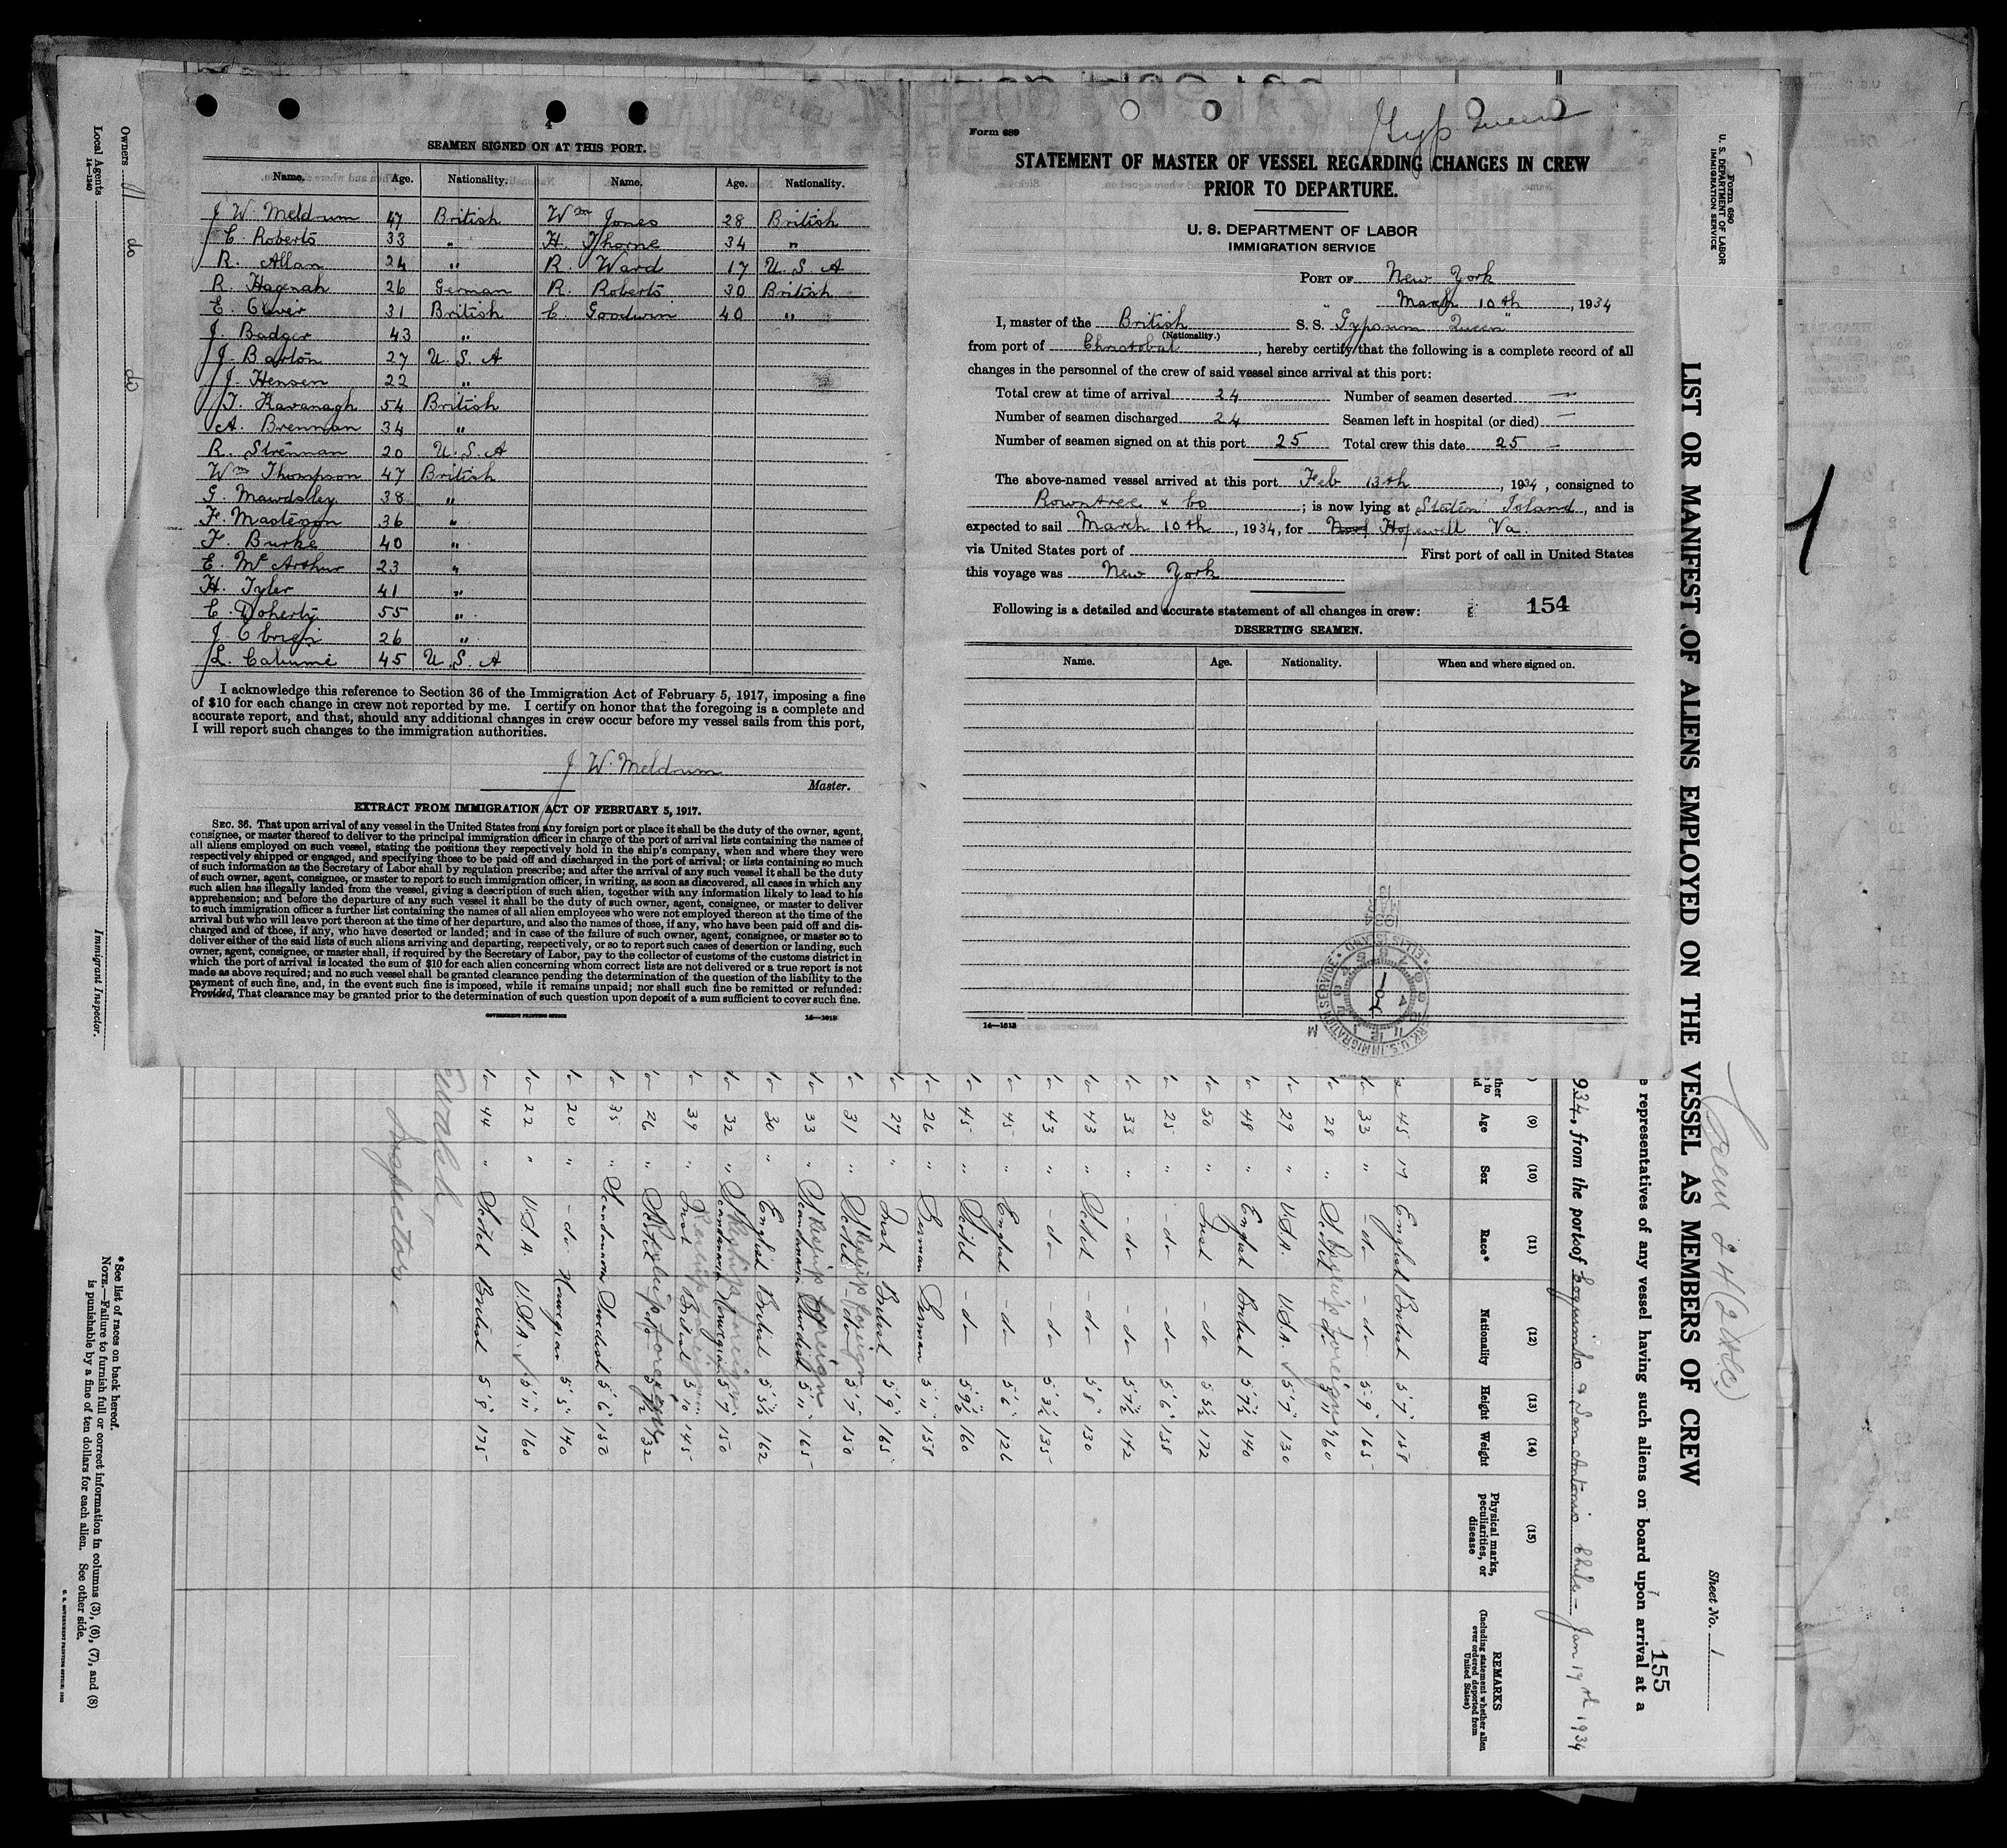 4
SEAMEN SIGNED ON AT THIS PORT.
Name. Age. Nationality. Name. Age. Nationality.
J W Meldrum 47 British Wm Jones 28 British
C Roberts 33 " H. Thorne 34 "
R. Allan 24 " R. Ward 17 U. S A
R. Hagenah 26 German R. Roberts 30 British
E. Oliver 31 British C Goodwin 40 "
J. Badger 43 "
J. Barton 27 U. S. A
J. Hensen 22 "
T. Kavanagh 54 British
A. Brennan 34 "
R. 20 U. S. A
Wm Thompson 47 British
G. Mawdsley 38 "
F. Masterson 36 "
F. Burke 40 "
E. Mc Arthur 23 "
H. Tyler 41 "
C. Doherty 55 "
J. 26 "
L. 45 U. S. A
I acknowledge this reference to Section 36 of the Immigration Act of February 5, 1917, imposing a fine
of $10 for each change in crew not reported by me. I certify on honor that the foregoing is a complete and
accurate report, and that, should any additional changes in crew occur before my vessel sails from this port,
I will report such changes to the immigration authorities.
J W. Meldrum
Master.
EXTRACT FROM IMMIGRATION ACT OF FEBRUARY 5, 1917.
SEC. 36. That upon arrival of any vessel in the United States from any foreign port or place it shall be the duty of the owner, agent,
consignee, or master thereof to deliver to the principal immigration officer in charge of the port of arrival lists containing the names of
all aliens employed on such vessel, stating the positions they respectively hold in the ship's company, when and where they were
respectively shipped or engaged, and specifying those to be paid off and discharged in the port of arrival; or lists containing so much
of such information as the Secretary of Labor shall by regulation prescribe; and after the arrival of any such vessel it shall be the duty
of such owner, agent, consignee, or master to report to such immigration officer, in writing, as soon as discovered, all cases in which any
such alien has illegally landed from the vessel, giving a description of such alien, together with any information likely to lead to his
apprehension; and before the departure of any such vessel it shall be the duty of such owner, agent, consignee, or master to deliver
to such immigration officer a further list containing the names of all alien employees who were not employed thereon at the time of the
arrival but who will leave port thereon at the time of her departure, and also the names of those, if any, who have been paid off and dis-
charged and of those, if any, who have deserted or landed; and in case of the failure of such owner, agent, consignee, or master so to
deliver either of the said lists of such aliens arriving and departing, respectively, or so to report such cases of desertion or landing, such
owner, agent, consignee, or master shall, if required by the Secretary of Labor, pay to the collector of customs of the customs district in
which the port of arrival is located the sum of $10 for each alien concerning whom correct lists are not delivered or a true report is not
made as above required; and no such vessel shall be granted clearance pending the determination of the question of the liability to the
payment of such fine, and, in the event such fine is imposed, while it remains unpaid; nor shall such fine be remitted or refunded:
Provided, That clearance may be granted prior to the determination of such question upon deposit of a sum sufficient to cover such fine.
GOVERNMENT PRINTING OFFICE 14—1013
Gyp Queen
Form 689
STATEMENT OF MASTER OF VESSEL REGARDING CHANGES IN CREW
PRIOR TO DEPARTURE.
U. S. DEPARTMENT OF LABOR
IMMIGRATION SERVICE
PORT OF New York
March 10th, 1934
I, master of the British S. S. "Gypsum Queen"
(Nationality.)
from port of Christobal, hereby certify that the following is a complete record of all
changes in the personnel of the crew of said vessel since arrival at this port:
Total crew at time of arrival 24 Number of seamen deserted —
Number of seamen discharged 24 Seamen left in hospital (or died) —
Number of seamen signed on at this port 25 Total crew this date 25 —
The above-named vessel arrived at this port Feb 13th, 1934, consigned to
Rowntree & Co; is now lying at Staten Island, and is
expected to sail March 10th, 1934, for Hopewell Va.
via United States port of First port of call in United States
this voyage was New York
Following is a detailed and accurate statement of all changes in crew: 154
DESERTING SEAMEN.
Name. Age. Nationality. When and where signed on.
14—1013
1934
MAR 13
ELLIS ISLAND
U.S. IMMIGRATION SERVICE
Form 680
U. S. DEPARTMENT OF LABOR
IMMIGRATION SERVICE
LIST OR MANIFEST OF ALIENS EMPLOYED ON THE VESSEL AS MEMBERS OF CREW
Sheet No. 1
155
representatives of any vessel having such aliens on board upon arrival at a
934, from the ports of Coquimbo & San Antonio Chile - Jan 17th 1934
(9) (10) (11) (12) (13) (14) (15)
Age Sex Race* Nationality Height Weight Physical marks, peculiarities, or disease REMARKS
(Including statement whether alien ever ordered deported from United States)
45 M English British 5'7 158
33 " -do- -do- 5'9" 165
28 " Scotch do 5'11 160
29 " U.S.A. U.S.A. 5'7" 130
48 " English British 5'7½ 140
50 " Irish -do- 5'5½ 172
25 " -do- -do- 5'6" 158
33 " -do- -do- 5'7½ 142
43 " Scotch -do- 5'8" 130
43 " -do- -do- 5'3½ 135
45 " English -do- 5'6" 126
45 " Scotch -do- 5'9½ 160
26 " German German 5'11" 158
27 " Irish British 5'9" 165
31 " Scotch -do- 5'7" 150
33 " Scandinavian Swedish 5'11" 165
30 " English British 5'5½ 162
32 " Scandinavian Norwegian 5'7 150
39 " Irish British 5'10" 145
26 " Scotch do 132
35 " Scandinavian Swedish 5'6 150
20 " -do- Norwegian 5'5" 140
22 " U.S.A. U.S.A. 5'11" 160
44 " Scotch British 5'8" 175
Inspector
Owners do do
Local Agents
14—1240
Immigrant Inspector.
*See list of races on back hereof.
NOTE.—Failure to furnish full or correct information in columns (3), (6), (7), and (8)
is punishable by a fine of ten dollars for each alien. See other side.
1